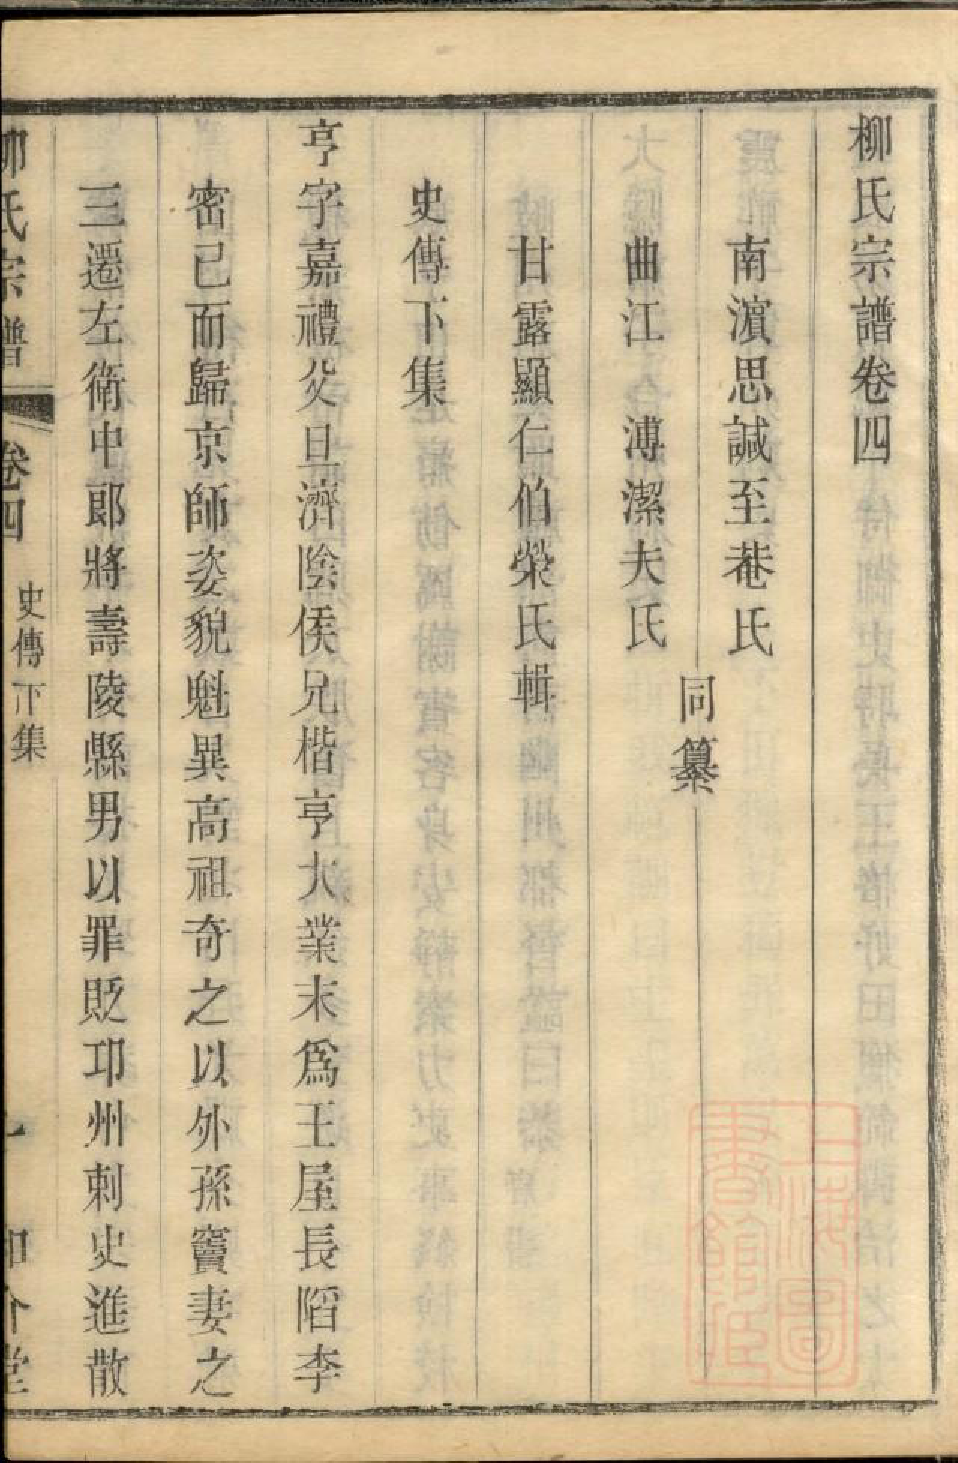 柳氏宗譜卷四
南濵思諴至菴氏
同纂
曲江溥潔夫氏
甘露顯仁伯榮氏輯
史傳下集
亨字嘉禮父旦濟陰侯兄楷亨大業末爲王屋長陷李
密已而歸京師姿貌魁異高祖奇之以外孫竇妻之
三遷左衛中郎將壽陵縣男以罪貶卭州刺史進散
柳氏宗譜
卷四
史傳下集
一
和介堂
上海圖書館藏